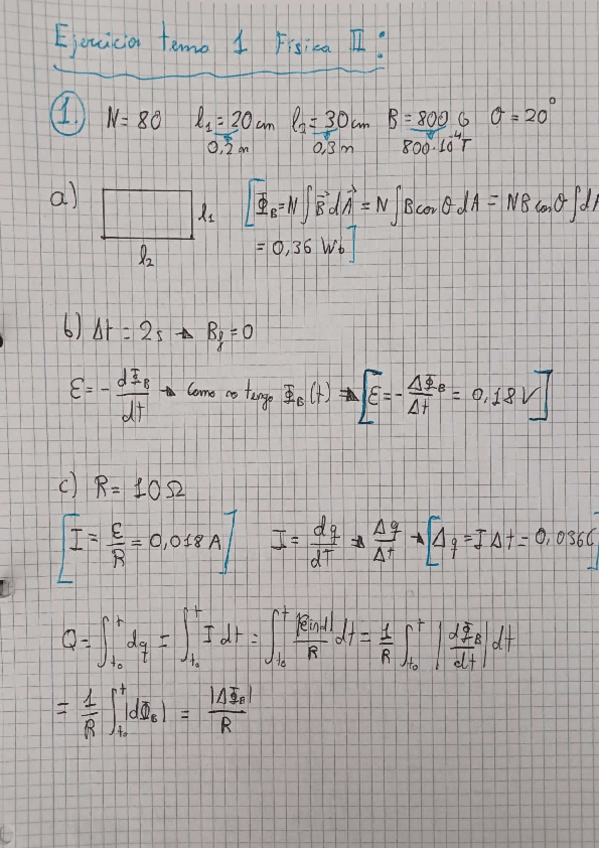 Ejercicios tema 1 Física II:
1. N=80 l₁=20cm l₂=30cm B=800 G θ=20°
0,2m 0,3m 800·10⁻⁴T
a) l₁ [Φ_B=N∫B⃗dA⃗ = N∫Bcosθ dA = NB cosθ∫dA
l₂ = 0,36 Wb]
b) Δt = 2s → B_f=0
ε = - dΦ_B/dt → Como no tengo Φ_B(t) → [ε=- ΔΦ_B/Δt = 0,18V]
c) R= 10Ω
[I= ε/R = 0,018A] I= dq/dt → Δq/Δt → [Δq=IΔt=0,036C]
Q=∫_{t₀}^{t} dq = ∫_{t₀}^{t} I dt = ∫_{t₀}^{t} |εind|/R dt = 1/R ∫_{t₀}^{t} |dΦ_B/dt| dt
= 1/R ∫_{t₀}^{t} |dΦ_B| = |ΔΦ_B|/R